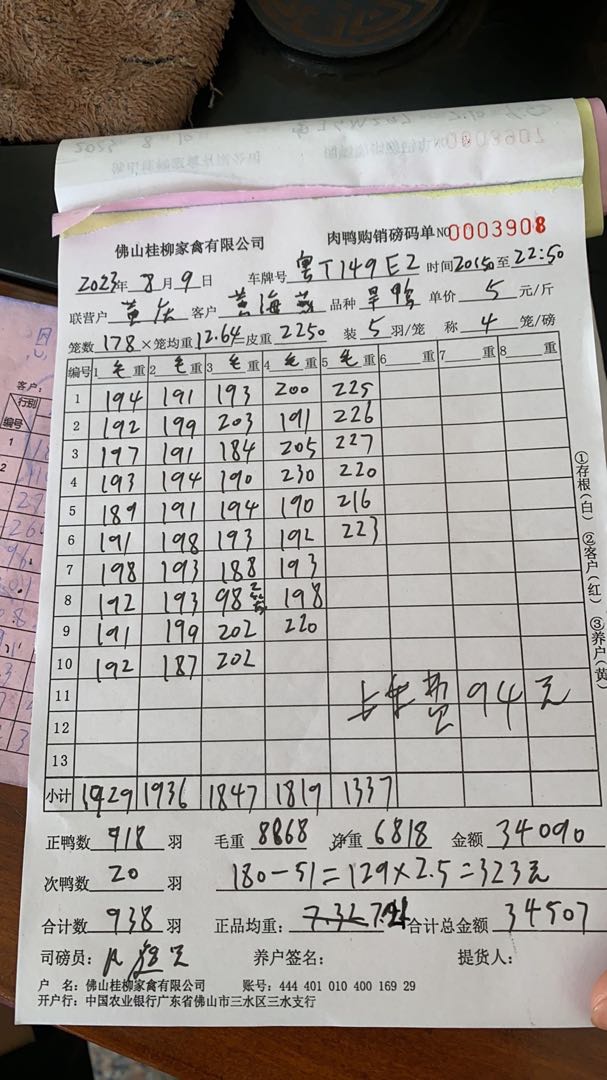 佛山桂柳家禽有限公司 肉鸭购销磅码单 NO 0003908
2023年 8月 9日 车牌号 粤T149E2 时间 20:50 至 22:50
联营户 黄 客户 黄海燕 品种 旱鸭 单价 5 元/斤
笼数 178 × 笼均重 12.64 皮重 2250 装 5 羽/笼 称 4 笼/磅
编号 1 毛重 2 毛重 3 毛重 4 毛重 5 毛重 6 重 7 重 8 重
1 194 191 193 200 225
2 192 199 203 191 226
3 197 191 184 205 227
4 193 194 190 230 220
5 189 191 194 190 216
6 191 198 193 192 223
7 198 193 188 193
8 192 193 98 2 198
9 191 199 202 220
10 192 187 202
11 上车费 94元
12
13
小计 1929 1936 1847 1819 1337
正鸭数 918 羽 毛重 8868 净重 6818 金额 34090
次鸭数 20 羽 180-51=129×2.5=323元
合计数 938 羽 正品均重: 7.32 合计总金额 34507
司磅员: 养户签名: 提货人:
户 名: 佛山桂柳家禽有限公司 账号: 444 401 010 400 169 29
开户行: 中国农业银行广东省佛山市三水区三水支行
①存根(白) ②客户(红) ③养户(黄)
客户:
行别
编号
1
2